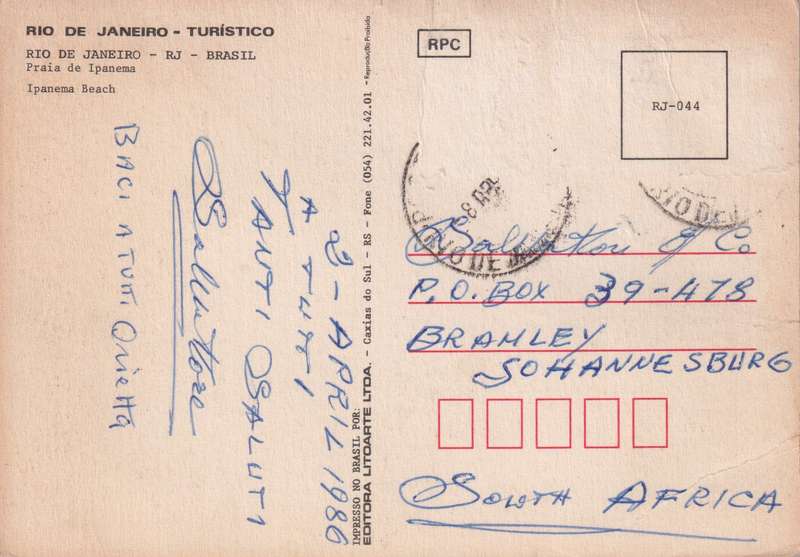 RIO DE JANEIRO - TURÍSTICO
RIO DE JANEIRO - RJ - BRASIL
Praia de Ipanema
Ipanema Beach
RPC
RJ-044
2 - APRIL 1986
A TUTTI
TANTI SALUTI
Salvatore
BACI A TUTTI Orietta
IMPRESSO NO BRASIL POR:
EDITORA LITOARTE LTDA. - Caxias do Sul - RS - Fone (054) 221.42.01 - Reprodução Proibida
8 ABR
RIO DE JANEIRO
RIO DE
Salvatore & Co
P.O. BOX 39-478
BRAMLEY
JOHANNESBURG
SOUTH AFRICA